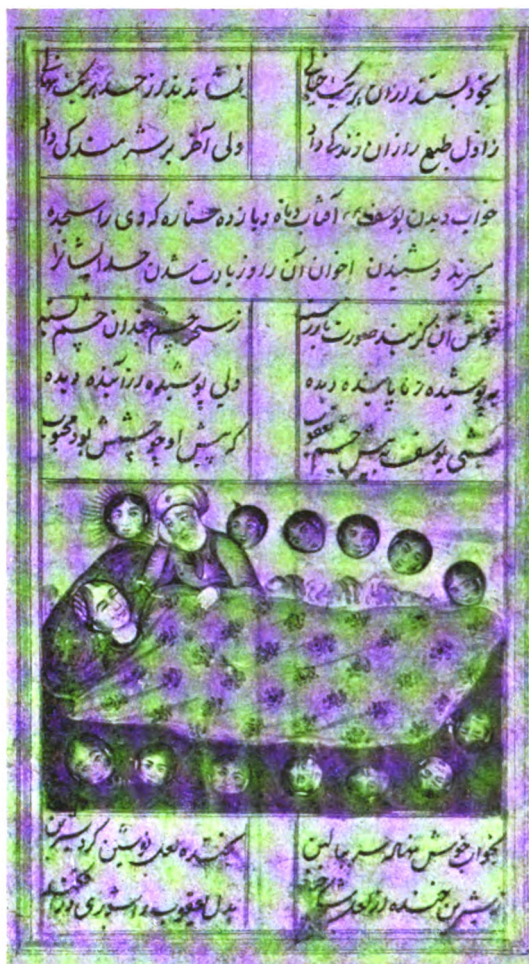 بخود بستند ازان هر یک خیالی نشاندند از حسد هر یک نهالی
ز اول طبع را زان زندگی داد ولی آخر بر شرمندگی داد
خواب دیدن یوسف آفتاب و ماه و یازده ستاره که وی را سجده
میبرند و شنیدن اخوان آن را و زیادت شدن حسد ایشانرا
خوش آن کز بند صورت باز رسته ز سحر چشم بندان چشم بسته
به پوشیده ز ناپاینده دیده ولی پوشیده در آینده دیده
شبی یوسف به پیش چشم یعقوب که پیش او چو چشمش بود محبوب
بخواب خوش نهاده سر ببالین بخنده لعل نوشین کرد شیرین
ز شیرین خنده زان لعل بدل یعقوب را شوری در افکند